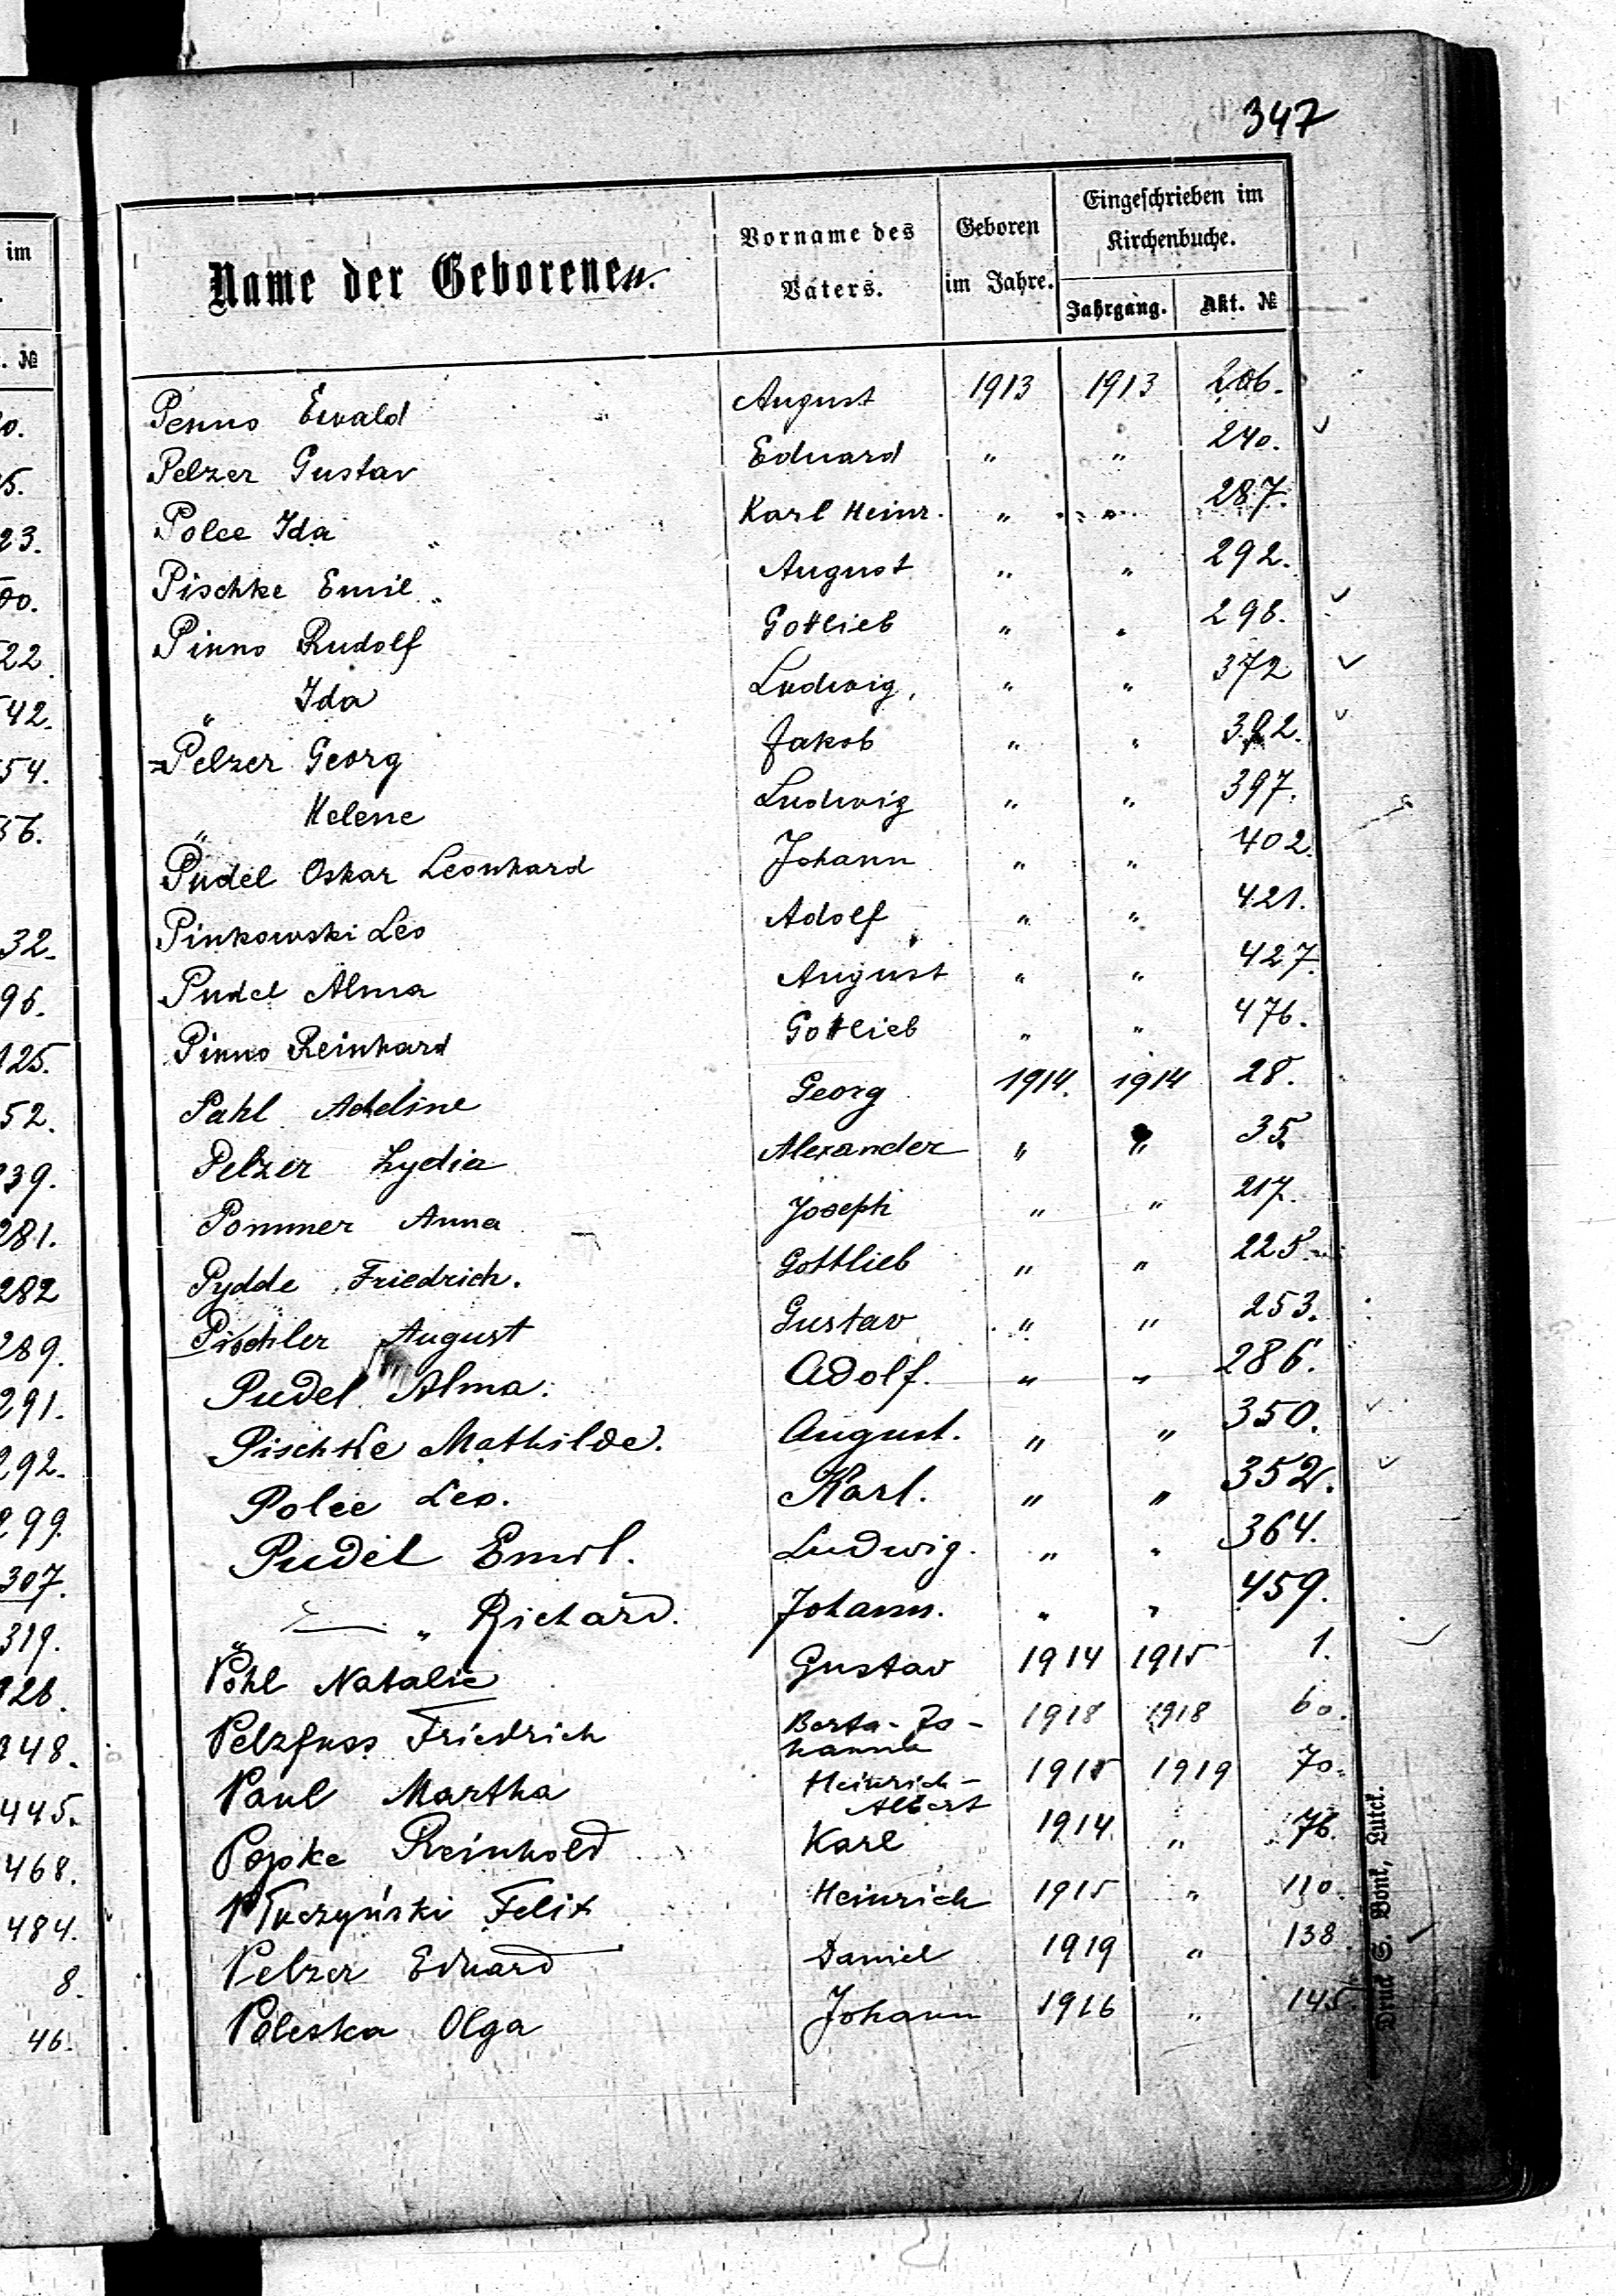 347
Name der Geborenen.
Vorname des Vaters.
Geboren im Jahre.
Eingeschrieben im Kirchenbuche.
Jahrgang. Akt. №
Penno Ewald August 1913 1913 206.
Pelzer Gustav Eduard " " 240.
Polee Ida Karl Heinr. " " 287.
Pischke Emil August " " 292.
Pinno Rudolf Gottlieb " " 296.
" Ida Ludwig, " " 372
Pelzer Georg Jakob " " 392.
" Helene Ludwig " " 397.
Pudel Oskar Leonhard Johann " " 402.
Pinkowski Leo Adolf " " 421.
Pudel Alma August " " 427.
Pinno Reinhard Gottlieb " " 476.
Pahl Adeline Georg 1914. 1914 28.
Pelzer Lydia Alexander " " 35.
Pommer Anna Joseph " " 217.
Pydde Friedrich. Gottlieb " " 225.
Pischler August Gustav " " 253.
Pudel Alma. Adolf. " " 286.
Pischke Mathilde. August. " " 350.
Polee Leo. Karl. " " 352.
Pudel Emil. Ludwig. " " 364.
" Richard. Johann. " " 459.
Pohl Natalie Gustav 1914 1915 1.
Pelzfuss Friedrich Berta-Jo-
hanna 1918 1918 60.
Paul Martha Heinrich-
Albert 1915 1919 70.
Popke Reinhold Karl 1914 " 76.
Felix Heinrich 1915 " 110.
Pelzer Eduard Daniel 1919 " 138.
Paleska Olga Johann 1916 " 145.
Druck S. Bonk, Lutck.
im
. №
0.
5.
23.
00.
22.
42.
54.
56.
32.
96.
125.
52.
239.
281.
282
289.
291.
292.
299.
307.
319.
326.
348.
445.
468.
484.
8.
46.